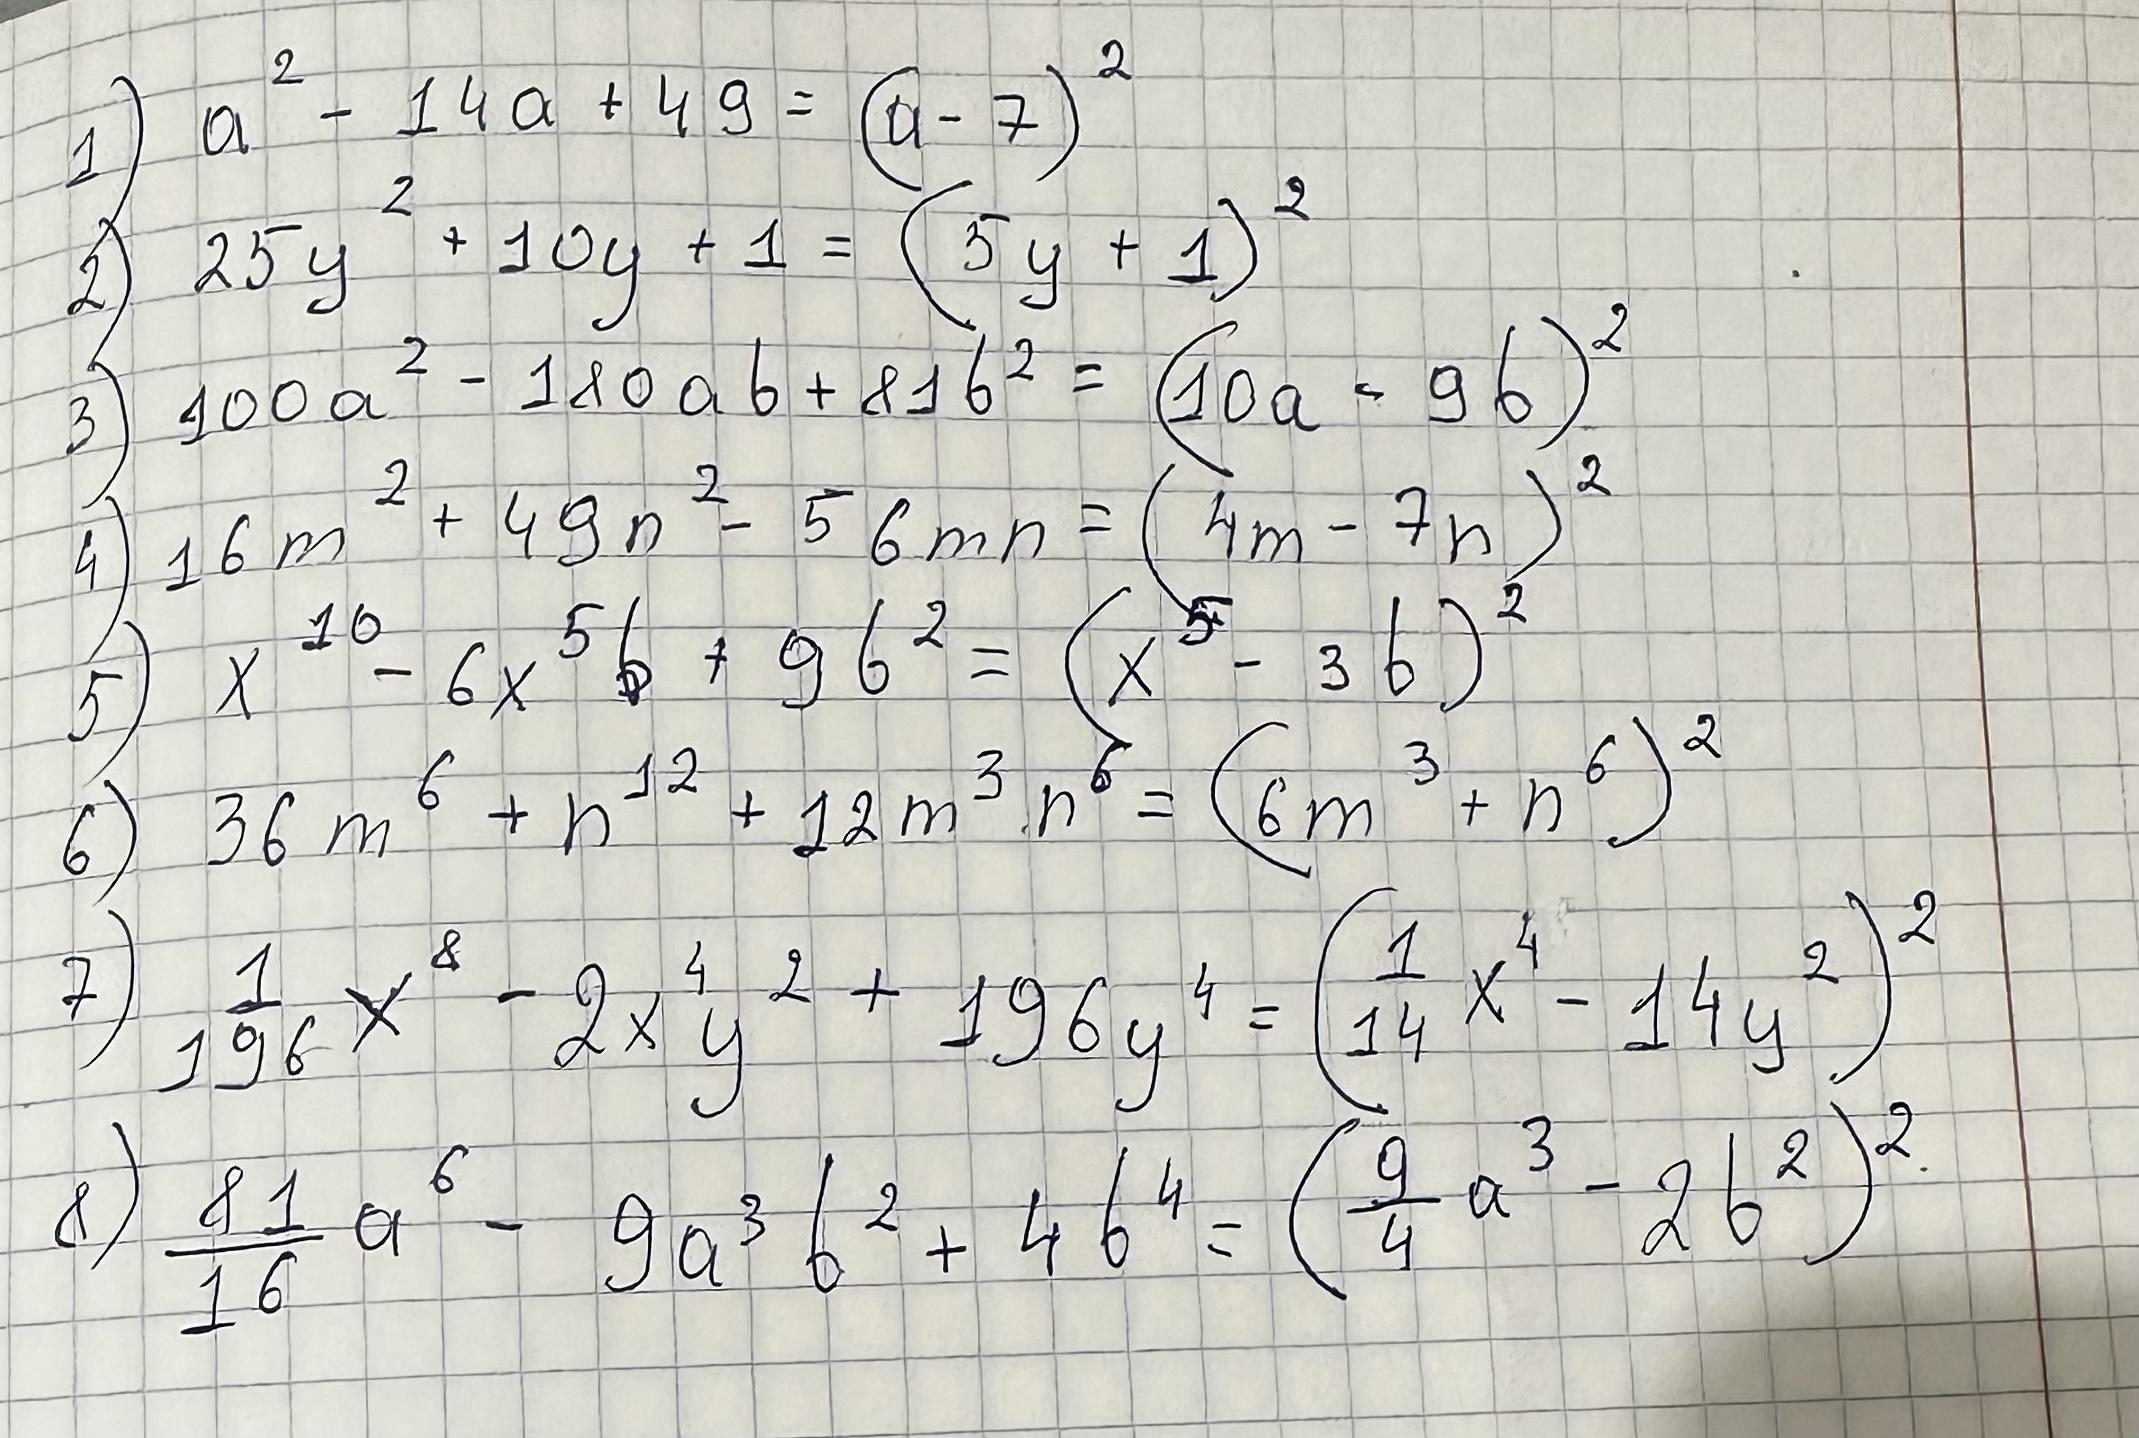 1) a² - 14a + 49 = (a - 7)²
2) 25y² + 10y + 1 = (5y + 1)²
3) 100a² - 180ab + 81b² = (10a - 9b)²
4) 16m² + 49n² - 56mn = (4m - 7n)²
5) x¹⁰ - 6x⁵b + 9b² = (x⁵ - 3b)²
6) 36m⁶ + n¹² + 12m³n⁶ = (6m³ + n⁶)²
7) 1/196 x⁸ - 2x⁴y² + 196y⁴ = (1/14 x⁴ - 14y²)²
8) 81/16 a⁶ - 9a³b² + 4b⁴ = (9/4 a³ - 2b²)²